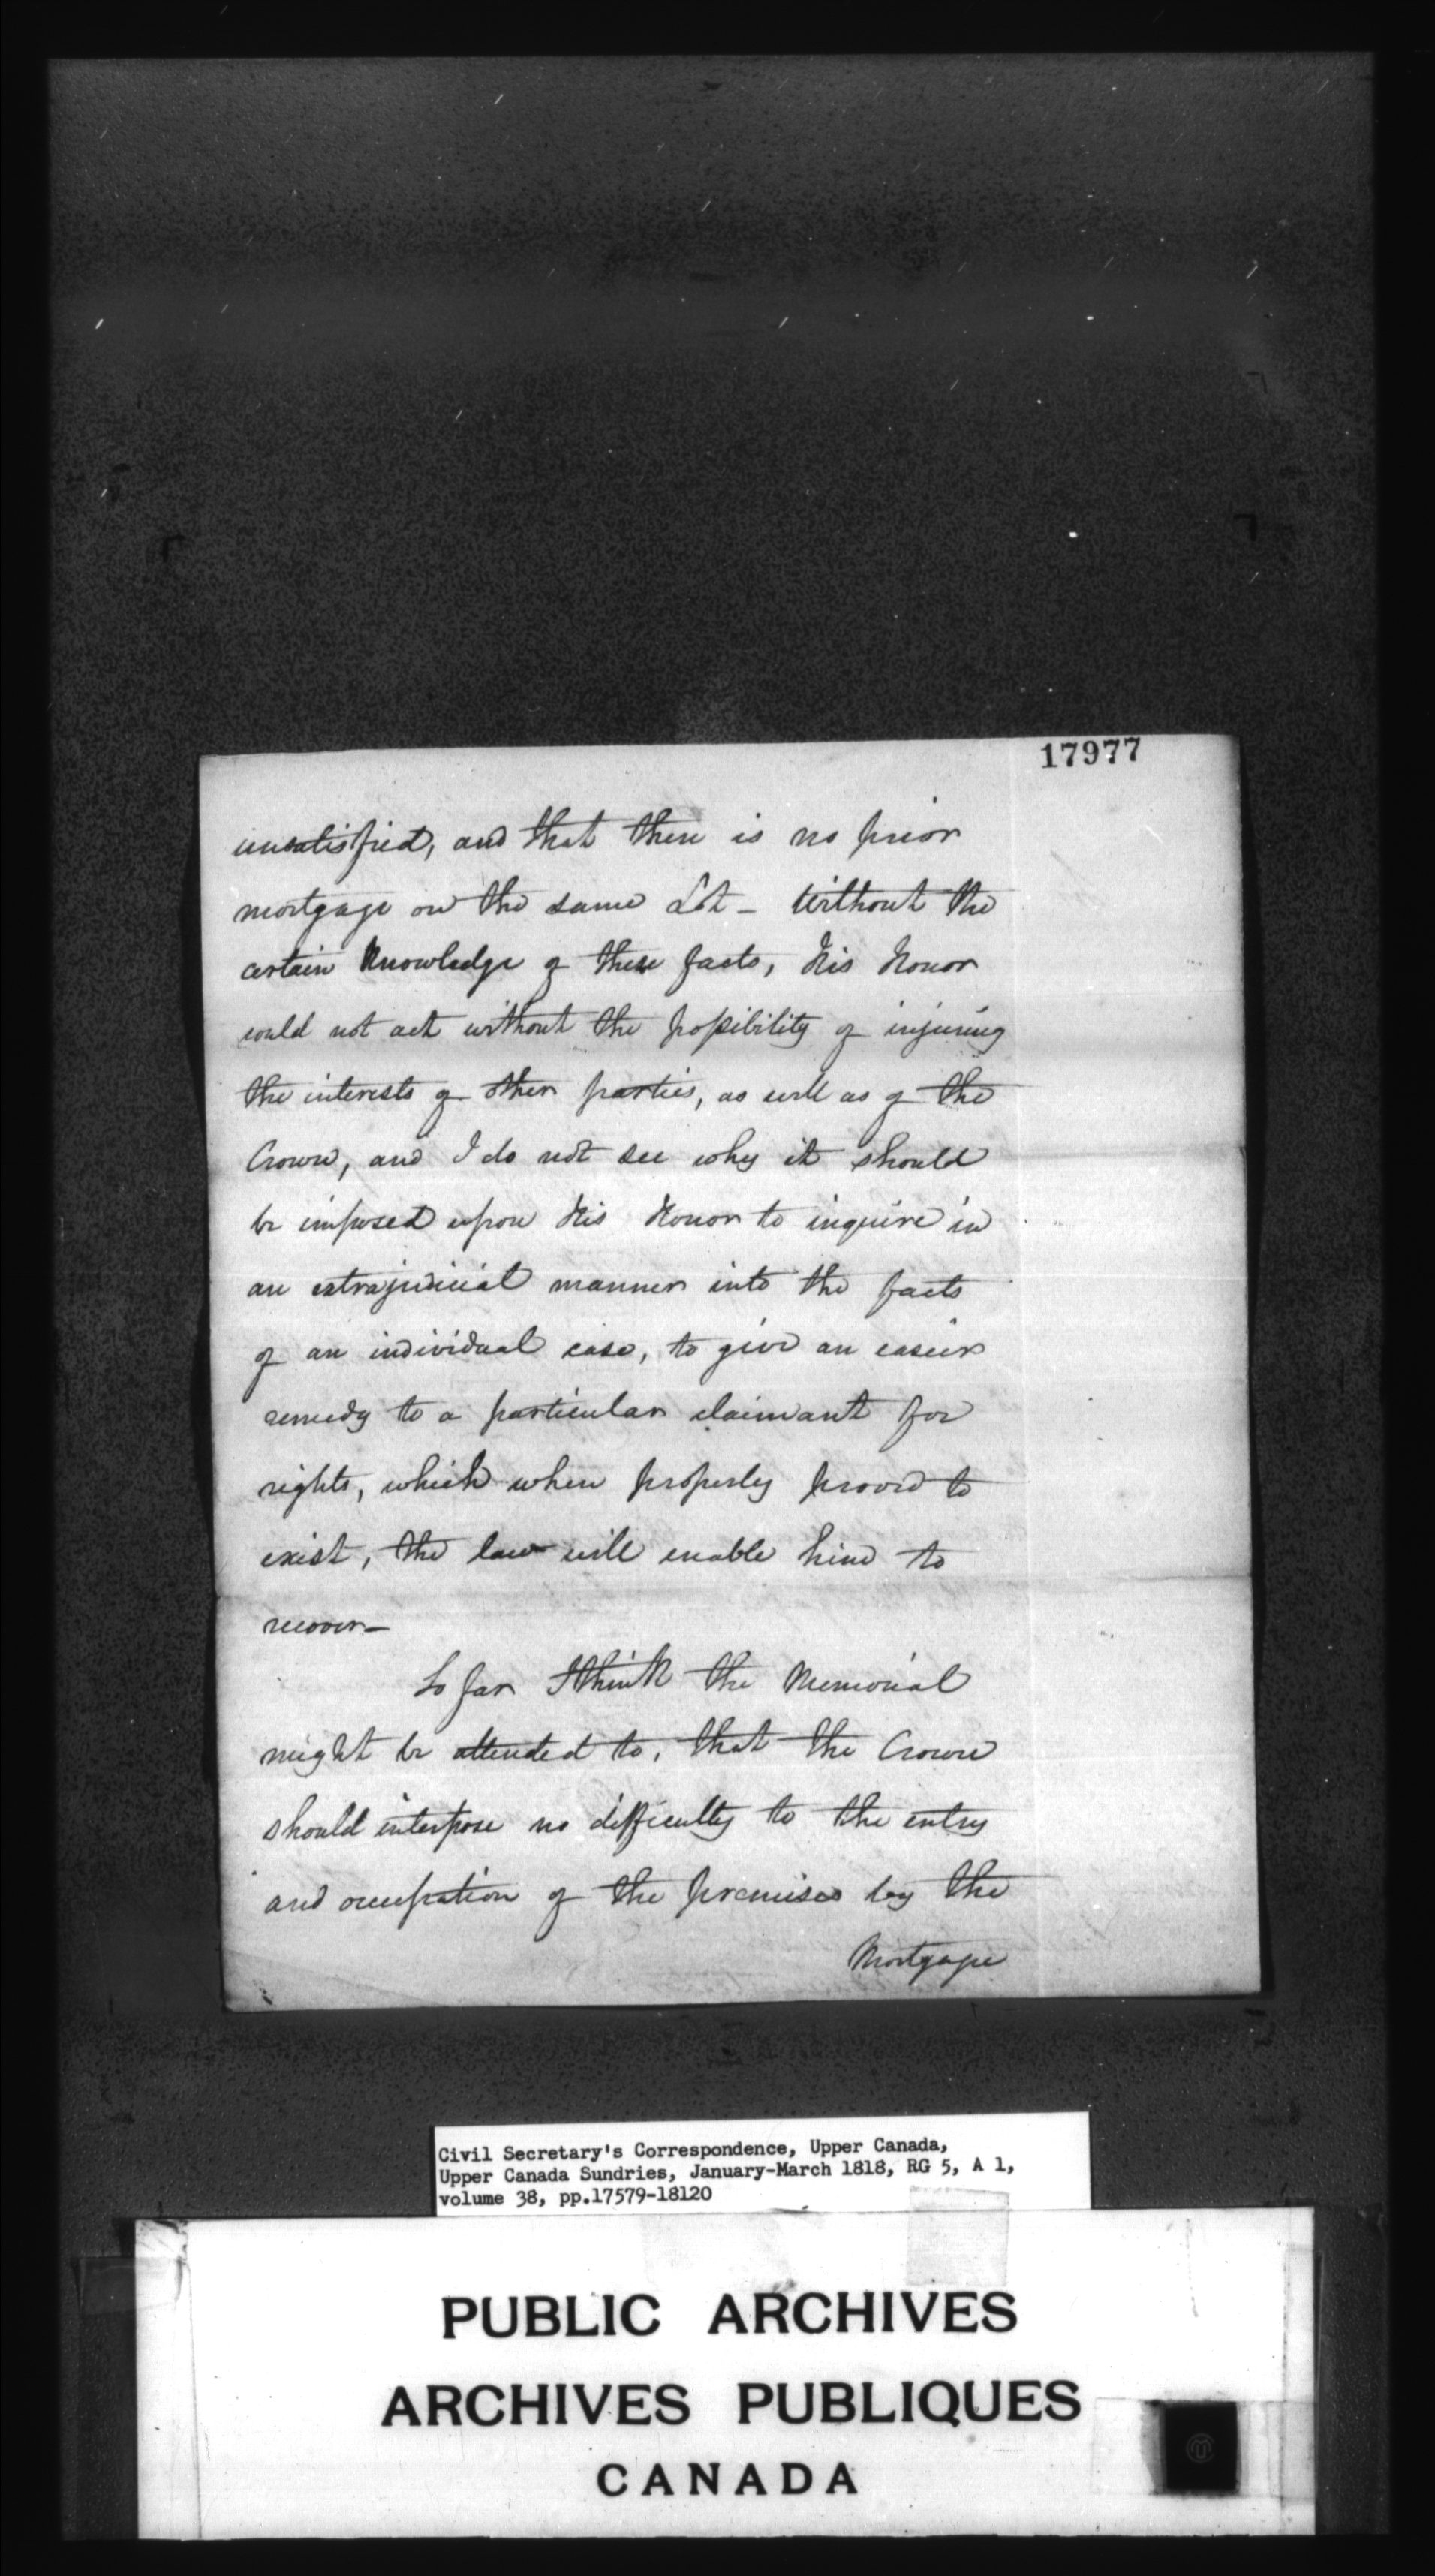 17977
unsatisfied, and that there is no prior
mortgage on the same Lot - Without the
certain Knowledge of these facts, His Honor
could not act without the possibility of injuring
the interests of other parties, as well as of the
Crown, and I do not see why it should
be imposed upon His Honor to inquire in
an extrajudicial manner into the facts
of an individual case, to give an easier
remedy to a particular claimant for
rights, which when properly proved to
exist, the law will enable him to
recover-
So far I think the Memorial
might be attended to, that the Crown
should interpose no difficulty to the entry
and occupation of the premises by the
Mortgagee
Civil Secretary's Correspondence, Upper Canada,
Upper Canada Sundries, January-March 1818, RG 5, A 1,
volume 38, pp.17579-18120
PUBLIC ARCHIVES
ARCHIVES PUBLIQUES
CANADA